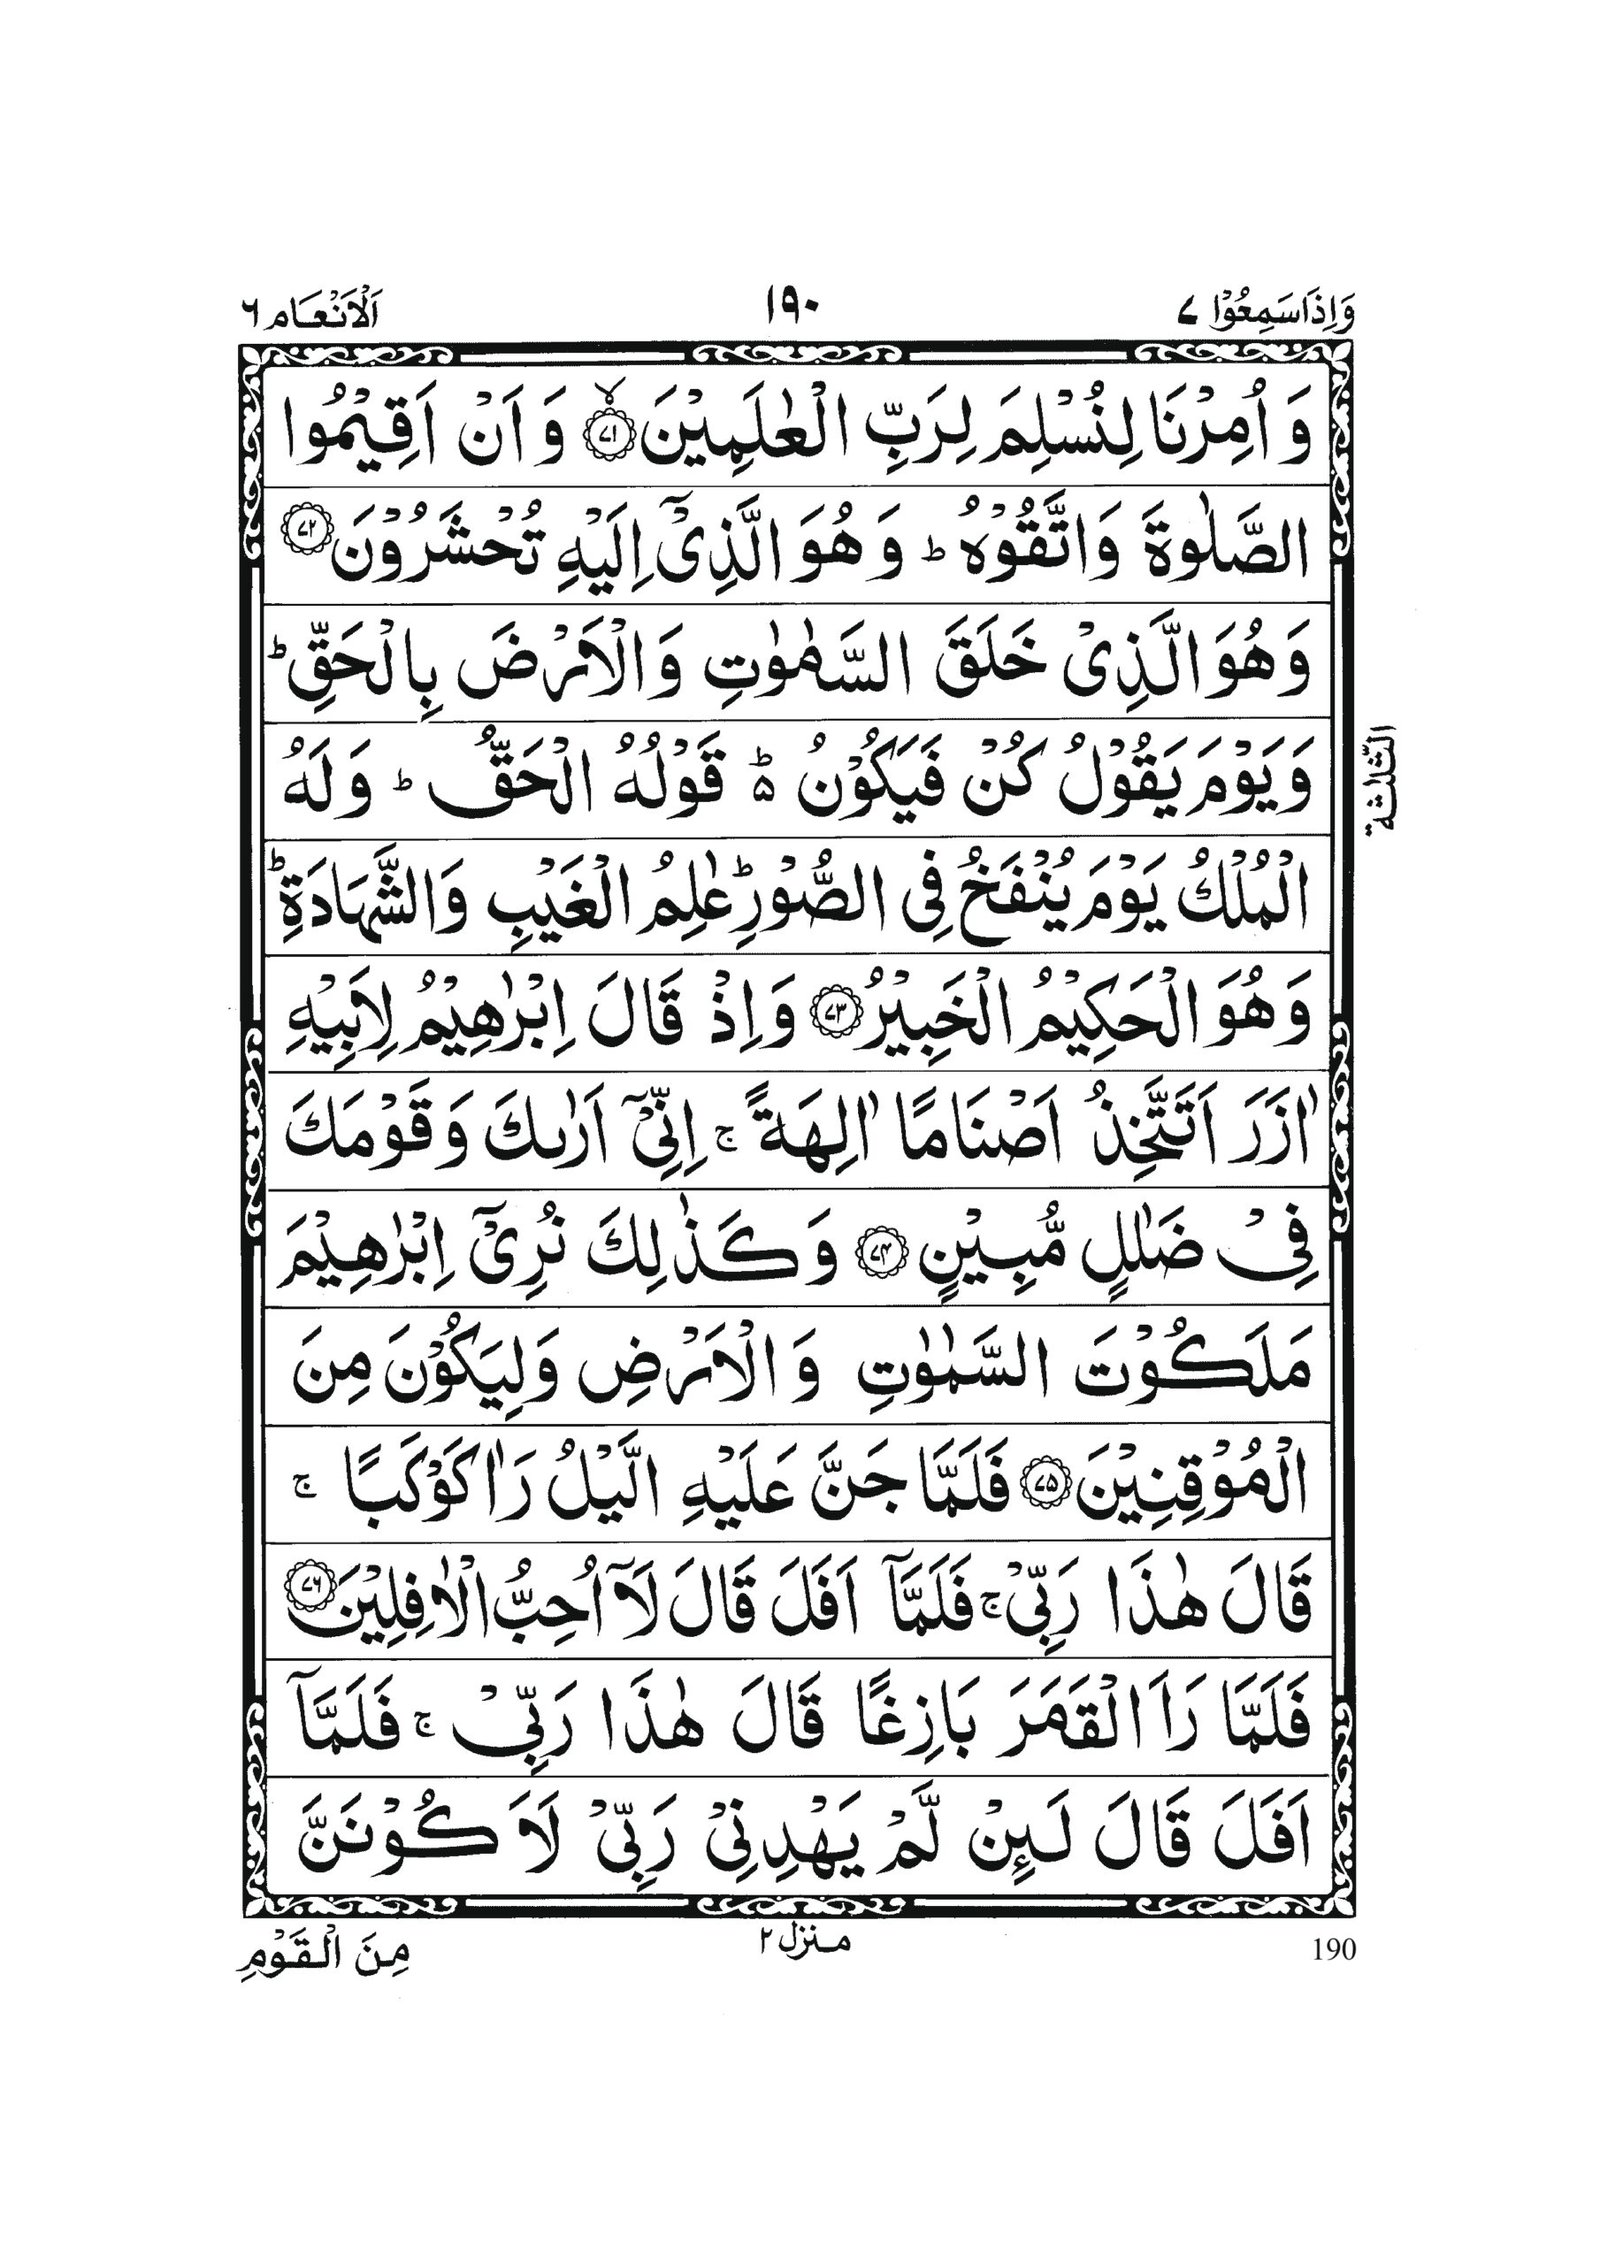 وَاِذَاسَمِعُوْا ۷ ۱۹۰ اَلْاَنْعَام ۶
وَ اُمِرْنَا لِنُسْلِمَ لِرَبِّ الْعٰلَمِيْنَ ۙ﴿۷۱﴾ وَ اَنْ اَقِيْمُوا
الصَّلٰوةَ وَاتَّقُوْهُ ؕ وَ هُوَ الَّذِىْۤ اِلَيْهِ تُحْشَرُوْنَ ﴿۷۲﴾
وَ هُوَ الَّذِىْ خَلَقَ السَّمٰوٰتِ وَالْاَرْضَ بِالْحَقِّ ؕ
وَ يَوْمَ يَقُوْلُ كُنْ فَيَكُوْنُ ۵ؕ قَوْلُهُ الْحَقُّ ؕ وَ لَهُ
الْمُلْكُ يَوْمَ يُنْفَخُ فِى الصُّوْرِ ؕ عٰلِمُ الْغَيْبِ وَالشَّهَادَةِ ؕ
وَ هُوَ الْحَكِيْمُ الْخَبِيْرُ ﴿۷۳﴾ وَاِذْ قَالَ اِبْرٰهِيْمُ لِاَبِيْهِ
اٰزَرَ اَتَتَّخِذُ اَصْنَامًا اٰلِهَةً ۚ اِنِّىْۤ اَرٰىكَ وَ قَوْمَكَ
فِىْ ضَلٰلٍ مُّبِيْنٍ ﴿۷۴﴾ وَ كَذٰلِكَ نُرِىْۤ اِبْرٰهِيْمَ
مَلَكُوْتَ السَّمٰوٰتِ وَ الْاَرْضِ وَلِيَكُوْنَ مِنَ
الْمُوْقِنِيْنَ ﴿۷۵﴾ فَلَمَّا جَنَّ عَلَيْهِ الَّيْلُ رَاٰ كَوْكَبًا ۚ
قَالَ هٰذَا رَبِّىْ ۚ فَلَمَّاۤ اَفَلَ قَالَ لَاۤ اُحِبُّ الْاٰفِلِيْنَ ﴿۷۶﴾
فَلَمَّا رَاَ الْقَمَرَ بَازِغًا قَالَ هٰذَا رَبِّىْ ۚ فَلَمَّاۤ
اَفَلَ قَالَ لَئِنْ لَّمْ يَهْدِنِىْ رَبِّىْ لَاَ كُوْنَنَّ
الثلثة
190 منزل ۲ مِنَ الْقَوْمِ